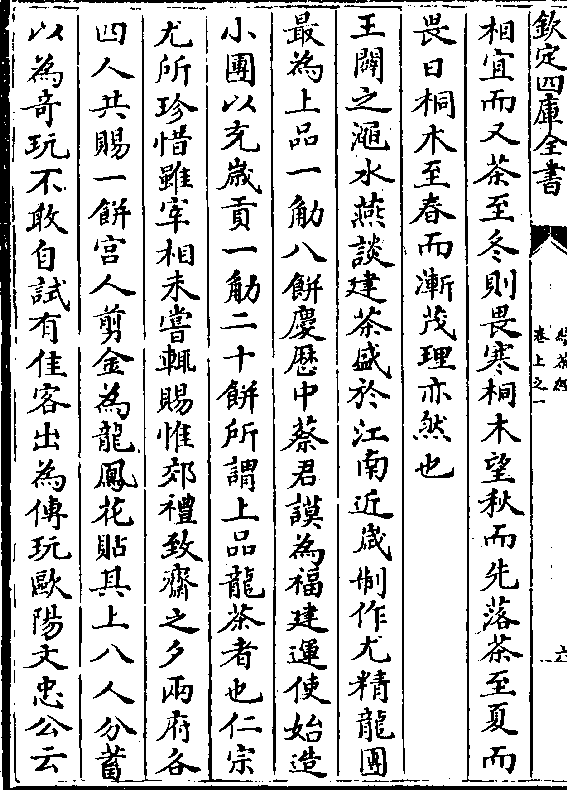 欽定四庫全書
續茶經
卷上之一
六
相宜而又茶至冬則畏寒桐木望秋而先落茶至夏而
畏日桐木至春而漸茂理亦然也
王闢之澠水燕談建茶盛於江南近歲制作尤精龍團
最為上品一觔八餅慶厯中蔡君謨為福建運使始造
小團以充歲貢一觔二十餅所謂上品龍茶者也仁宗
尤所珍惜雖宰相未嘗輒賜惟郊禮致齋之夕兩府各
四人共賜一餅宮人剪金為龍鳳花貼其上八人分蓄
以為奇玩不敢自試有佳客出為傳玩歐陽文忠公云